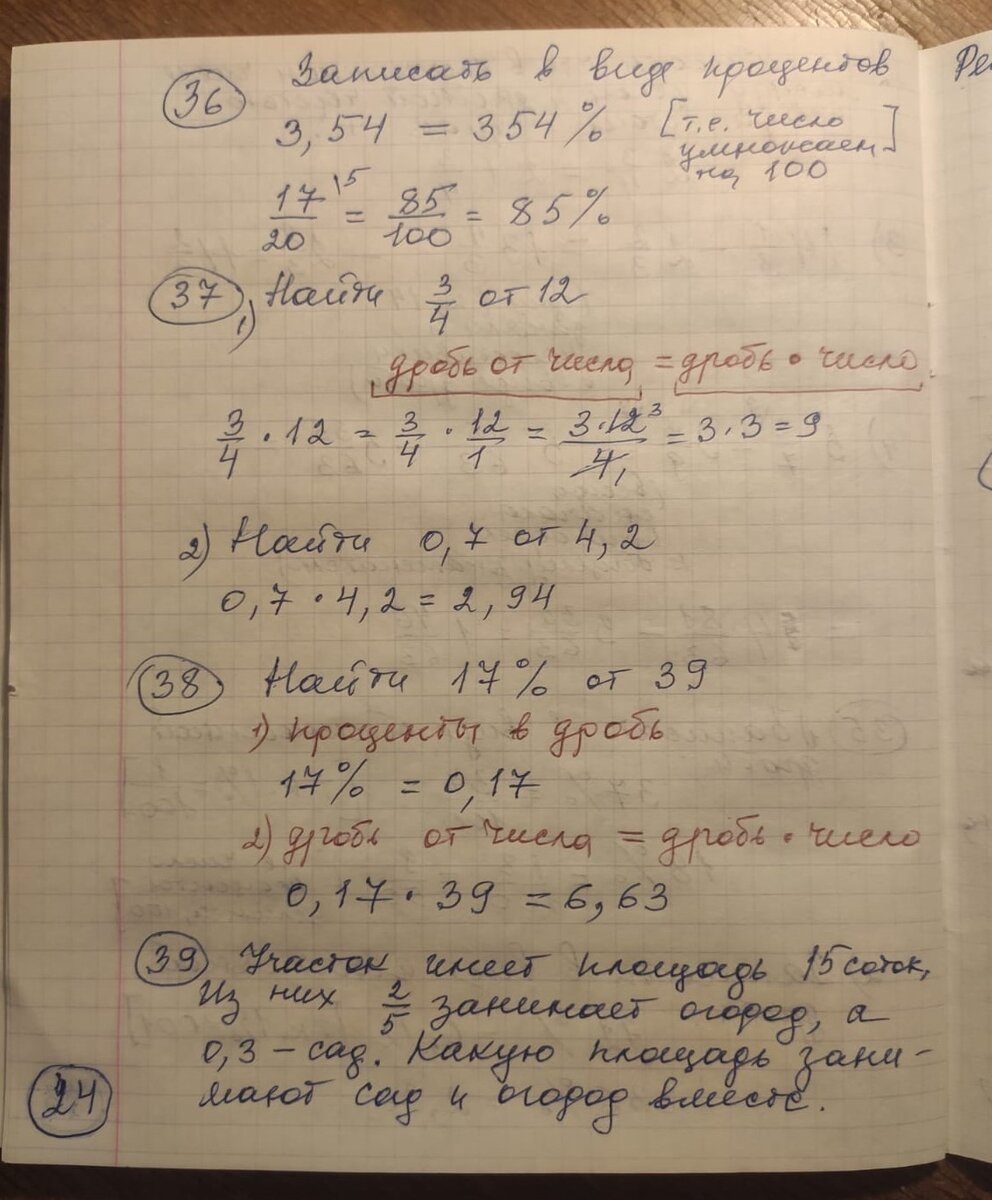 36 Записать в виде процентов
3,54 = 354% [т.е. число
умножаем
на 100]
17/20 \5 = 85/100 = 85%
37 1) Найти 3/4 от 12
дробь от числа = дробь • число
3/4 · 12 = 3/4 · 12/1 = 3·12 3/4 1 = 3·3 = 9
2) Найти 0,7 от 4,2
0,7 · 4,2 = 2,94
38 Найти 17% от 39
1) проценты в дробь
17% = 0,17
2) дробь от числа = дробь • число
0,17 · 39 = 6,63
39 Участок имеет площадь 15 соток,
Из них 2/5 занимает огород, а
0,3 – сад. Какую площадь зани-
мают сад и огород вместе.
24
Ре